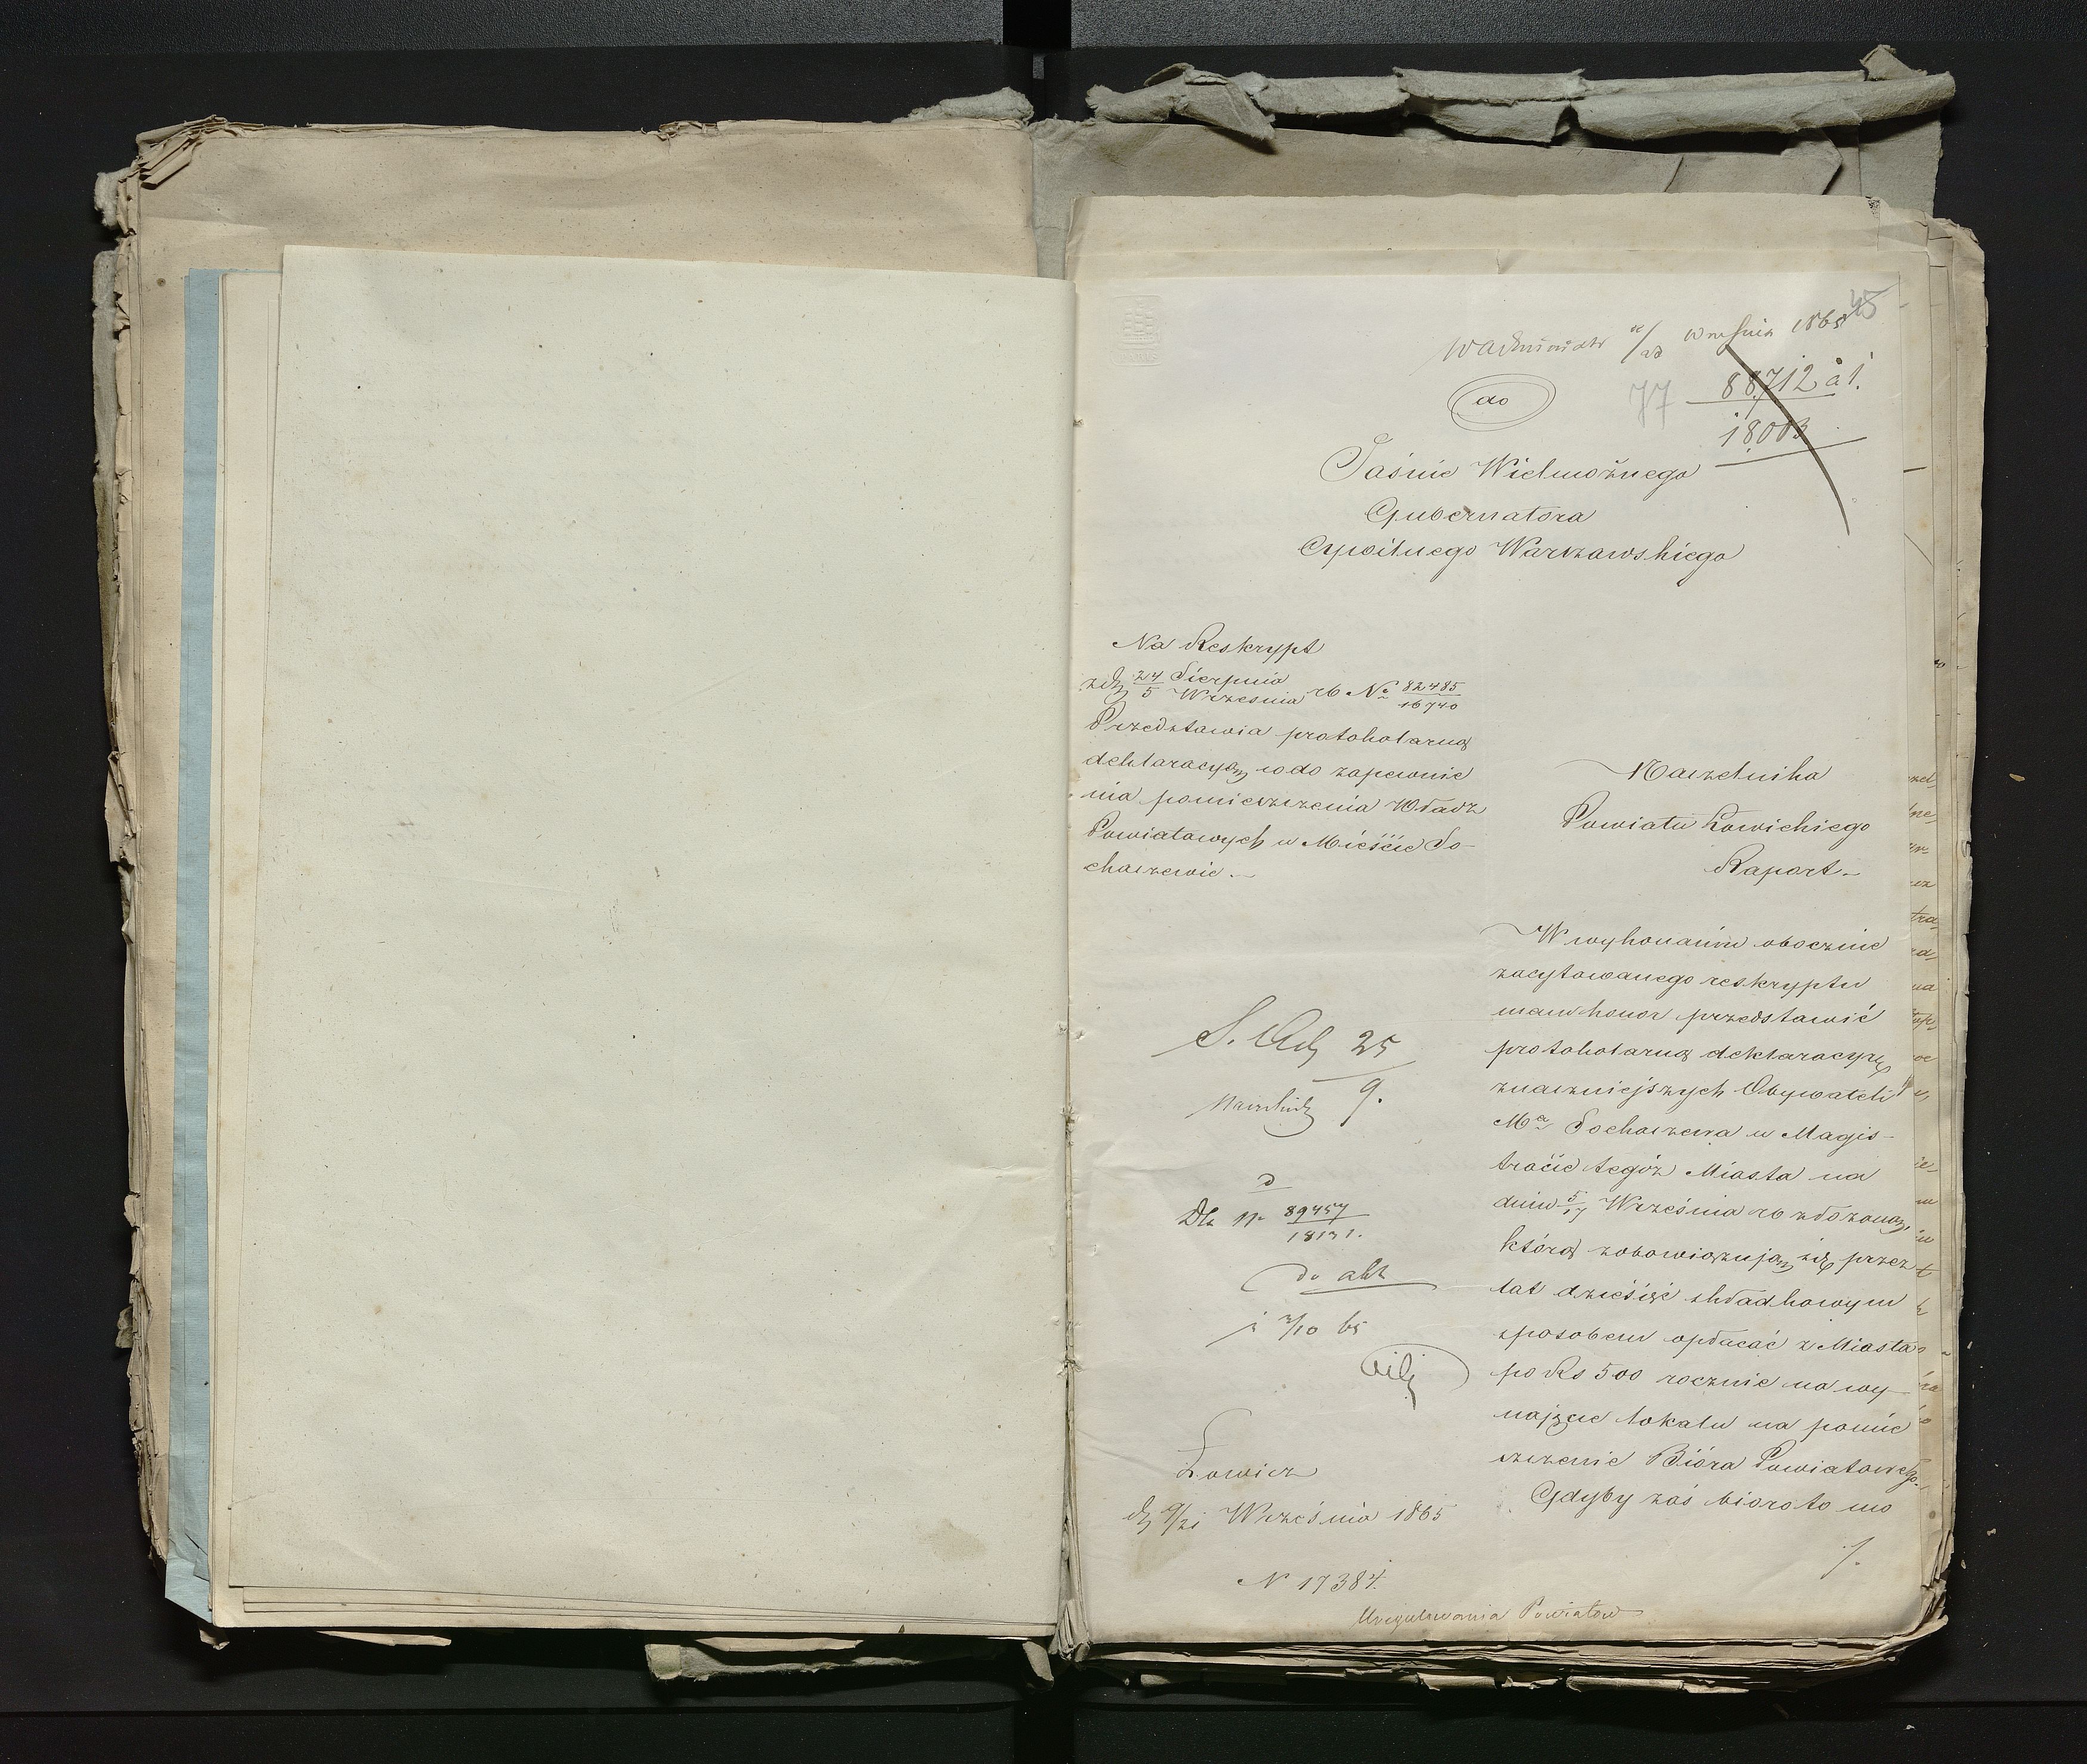 45
Września 1865
77
88,712 a 1.
18,003
do
Jaśnie Wielmożnego
Gubernatora
Cywilnego Warszawskiego
Na Reskrypt
z dn 24 Sierpnia
5 Września rb № 82485
16740
Przedstawia protokolarną
deklaracyą wdo zapewnie
nia pomieszczenia Władz
Powiatowych w Mieście So-
chaczewie.—
Naczelnika
Powiatu Łowickiego
Raport—
W wykonaniu obocznie
zacytowanego reskryptu
mam honor przedstawić
protokolarną deklaracyą
znaczniejszych Obywateli
Mca Sochaczewa w Magis-
tracie tegóż Miasta na
dniu 5/17 Września rb złożoną,
którą zobowiązują się przez
lat dziesięć składkowym
sposobem opłacać z Miasta
po Rs 500 rocznie na wy
najęcie lokalu na pomie
szczenie Bióra Powiatowego.
Gdyby zaś bioro to mo
./.
S. Adj 25
9.
Dla N 89457
18131.
do akt
2/10 65
Łowicz
d 9/21 Września 1865
N 17384.
Uregulowania Powiatow